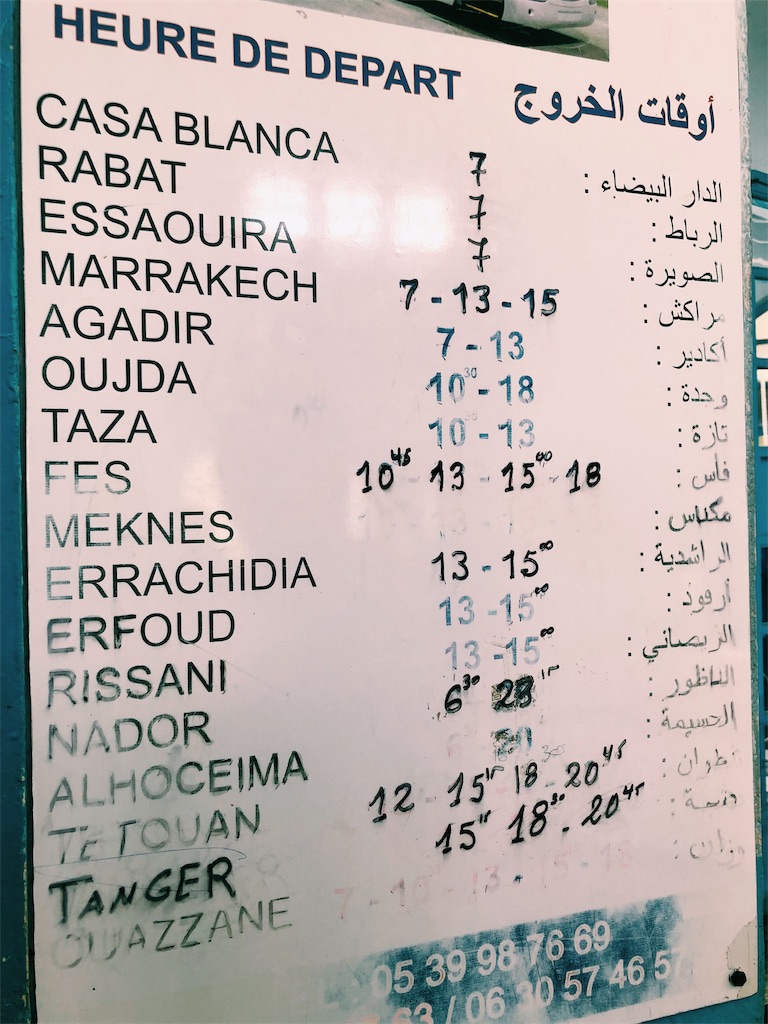 HEURE DE DEPART أوقات الخروج
CASA BLANCA 7 الدار البيضاء :
RABAT 7 الرباط :
ESSAOUIRA 7 الصويرة :
MARRAKECH 7 - 13 - 15 مراكش :
AGADIR 7 - 13 أكادير :
OUJDA 10 30 - 18 وجدة :
TAZA 10 30 - 13 تازة :
FES 10 45 - 13 - 15 00 - 18 فاس :
MEKNES مكناس :
ERRACHIDIA 13 - 15 00 الراشدية :
ERFOUD 13 - 15 00 أرفود :
RISSANI 13 - 15 00 الريصاني :
NADOR 6 30 23 15 الناظور :
ALHOCEIMA الحسيمة :
TETOUAN 12 - 15 15 18 30 - 20 45 تطوان :
TANGER 15 15 18 30 - 20 45
OUAZZANE 13 وزان :
05 39 98 76 69
63 / 06 30 57 46 57